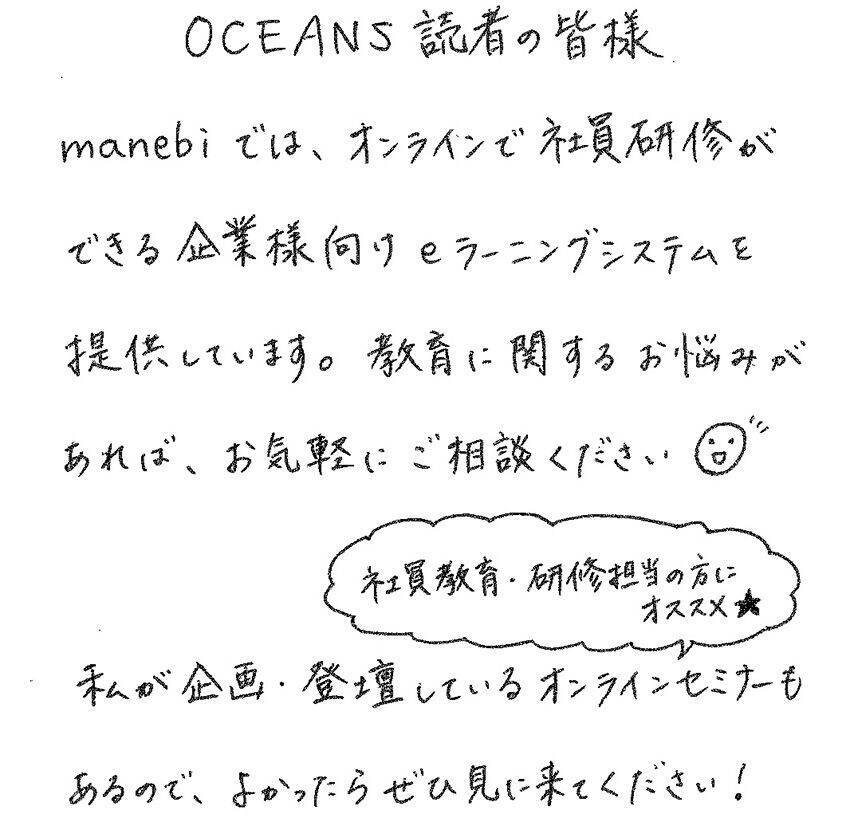 OCEANS 読者の皆様
manebi では、オンラインで社員研修が
できる企業様向け eラーニングシステムを
提供しています。教育に関するお悩みが
あれば、お気軽にご相談ください
社員教育・研修担当の方に
オススメ★
私が企画・登壇しているオンラインセミナーも
あるので、よかったらぜひ見に来てください!